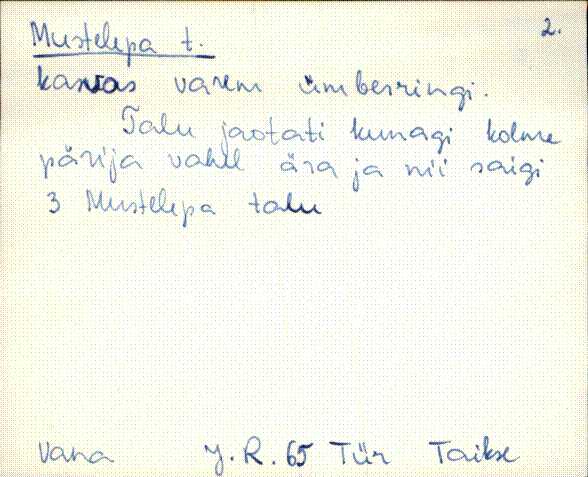 Mustelepa t. 2.
kasvas varem ümberringi.
Talu jaotati kunagi kolme
pärija vahel ära ja nii saigi
3 Mustelepa talu
Vana J.R. 65 Tür Taikse